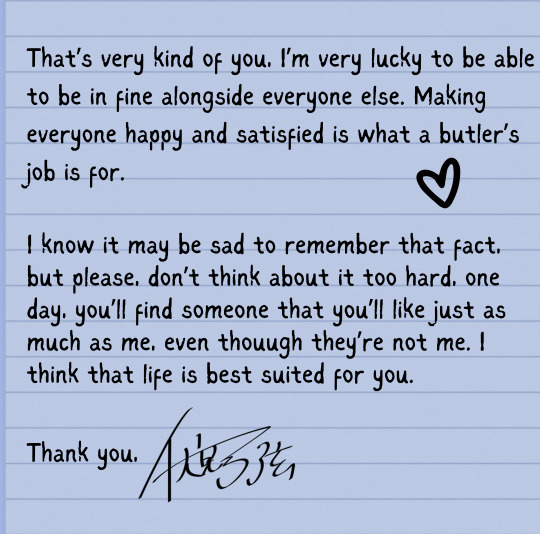 That's very kind of you, I'm very lucky to be able
to be in fine alongside everyone else. Making
everyone happy and satisfied is what a butler's
job is for.
I know it may be sad to remember that fact,
but please, don't think about it too hard, one
day, you'll find someone that you'll like just as
much as me, even thouugh they're not me. I
think that life is best suited for you.
Thank you,